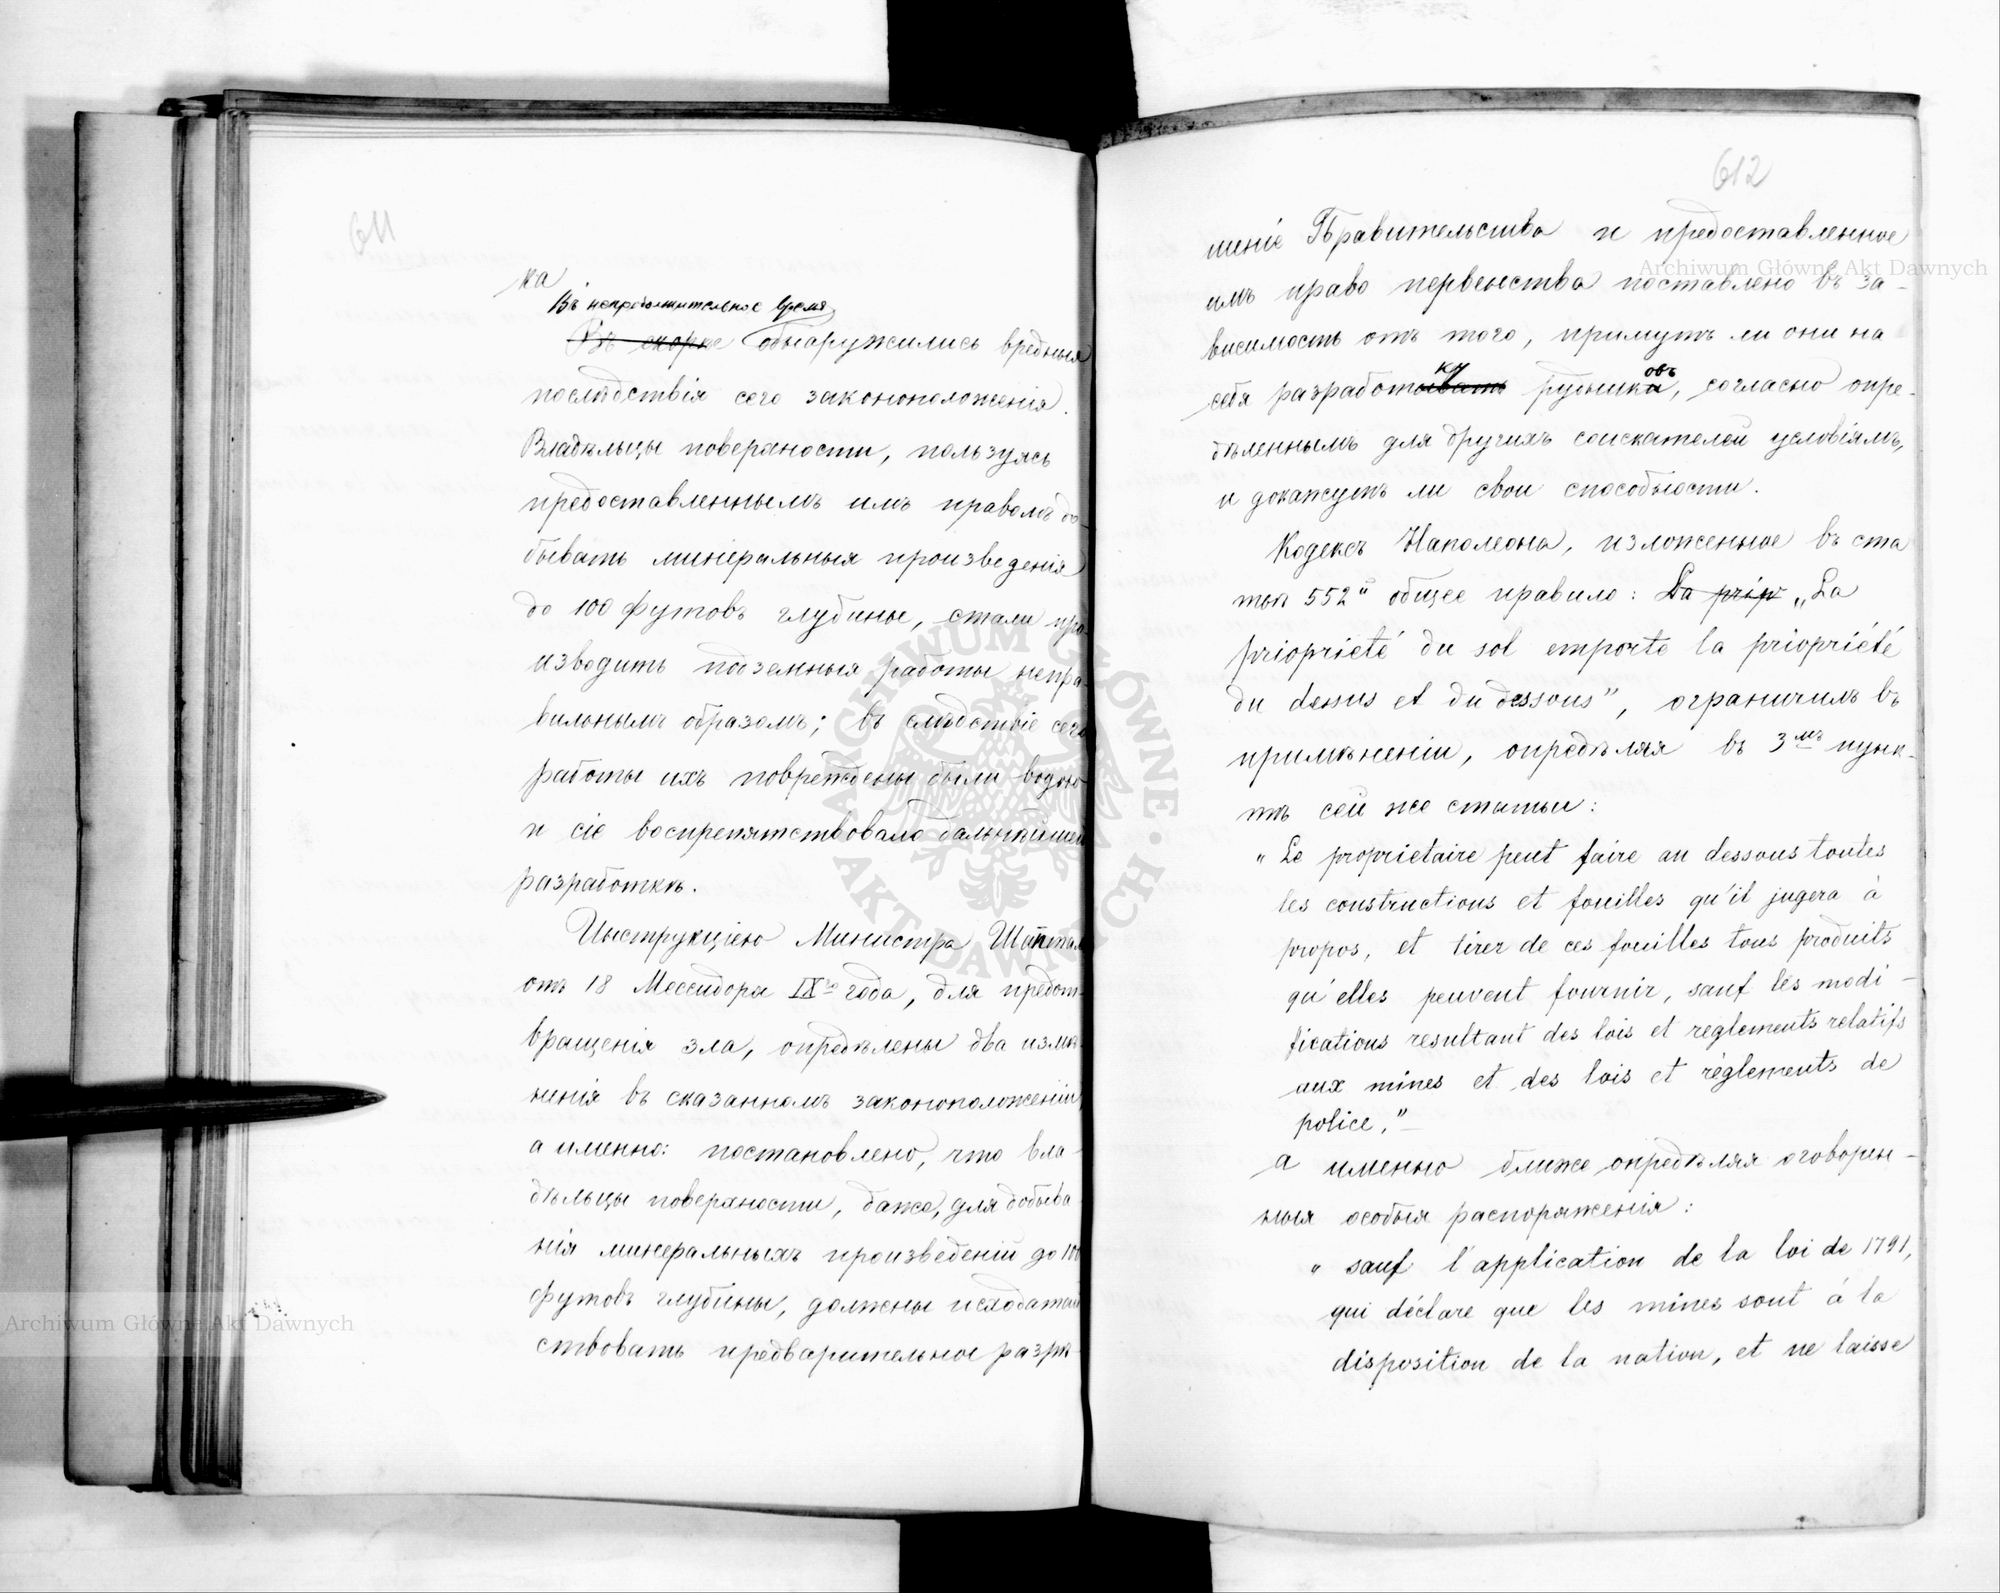 611
ка
Въ непродолжительное время
Въ скоре обнаружились вредныя
послѣдствія сего законоположенія.
Владѣльцы поверхности, пользуясь
предоставленнымъ имъ правомъ до-
бывать минеральныя произведенія
до 100 футовъ глубины, стали про-
изводить подземныя работы непра-
вильнымъ образомъ; въ слѣдствіе сего
работы ихъ повреждены были водою
и сіе воспрепятствовало дальнѣйшей
разработкѣ.
Инструкціею Министра Шаптал
отъ 18 Мессидора IXго года, для предот-
вращенія зла, опредѣлены два измѣ-
ненія въ сказанномъ законоположеніи,
а именно: постановлено, что вла-
дѣльцы поверхности, даже, для добыва-
нія минеральныхъ произведеній до 100
футовъ глубины, должны исходатай
ствовать предварительное разрѣ-
612
шеніе Правительства и предоставленное
имъ право первенства поставлено въ за-
висимость отъ того, примутъ ли они на
себя разработку рудниковъ, согласно опре-
дѣленнымъ для другихъ соискателей условіямъ,
и докажутъ ли свои способности.
Кодексъ Наполеона, изложенное въ ста
тьѣ 552й общее правило: La prip „La
priopriété du sol emporte la priopriété
du dessus et du dessous”, ограничилъ въ
примѣненіи, опредѣляя въ 3мъ пунк-
тѣ сей же статьи:
„Le proprietaire peut faire au dessous toutes
les constructions et fouilles qu'il jugera à
propos, et tirer de ces fouilles tous produits
qu'elles peuvent fournir, sauf les modi-
fications resultant des lois et reglements relatifs
aux mines et des lois et règlements de
police.”—
а именно ближе опредѣляя оговорен-
ныя особыя распоряженія:
„sauf l'application de la loi de 1791,
qui déclare que les mines sont á la
disposition de la nation, et ne laisse
Archiwum Główne Akt Dawnych
Archiwum Główne Akt Dawnych
ARCHIWUM GŁÓWNE AKT DAWNYCH